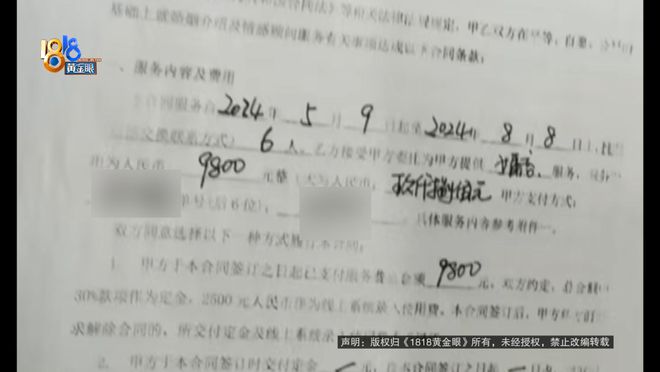 合同法》等相关法律法规规定，甲乙双方在平等、自愿、
基础上就婚姻介绍及情感顾问服务有关事项达成以下合同条款：
1818
黄金眼
一、服务内容及费用
合同服务自2024年5月9日起至2024年8月8日止，
交换联系方式）6人。乙方接受甲方委托为甲方提供 服务，
币为人民币 9800 元整（大写人民币： 玖仟捌佰元 甲方支付方式：
单号(后6位)： 具体服务内容参考附件一。
双方同意选择以下一种方式履行本合同：
1. 甲方于本合同签订之日起已支付服务费总金额 9800 元，双方约定，总金额
30%款项作为定金，2500元人民币作为线上系统录入使用费。本合同签订后，甲方
求解除合同的，所交付定金及线上系统录入
2. 甲方于本合同签订时交付定金 元，
声明：版权归《1818黄金眼》所有，未经授权，禁止改编转载